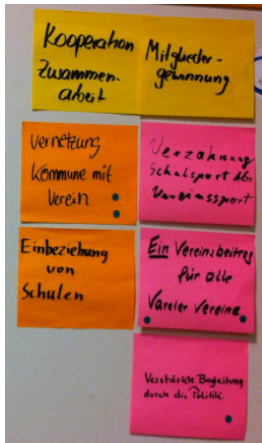 Kooperation
Zusammen-
arbeit
Mitglieder-
gewinnung
Vernetzung
Kommune mit
Verein
Verzahnung
Schulsport AGs
Vereinssport
Einbeziehung
von
Schulen
Ein Vereinsbeitrag
für alle
Vareler Vereine
Verstärkte Begleitung
durch die Politik